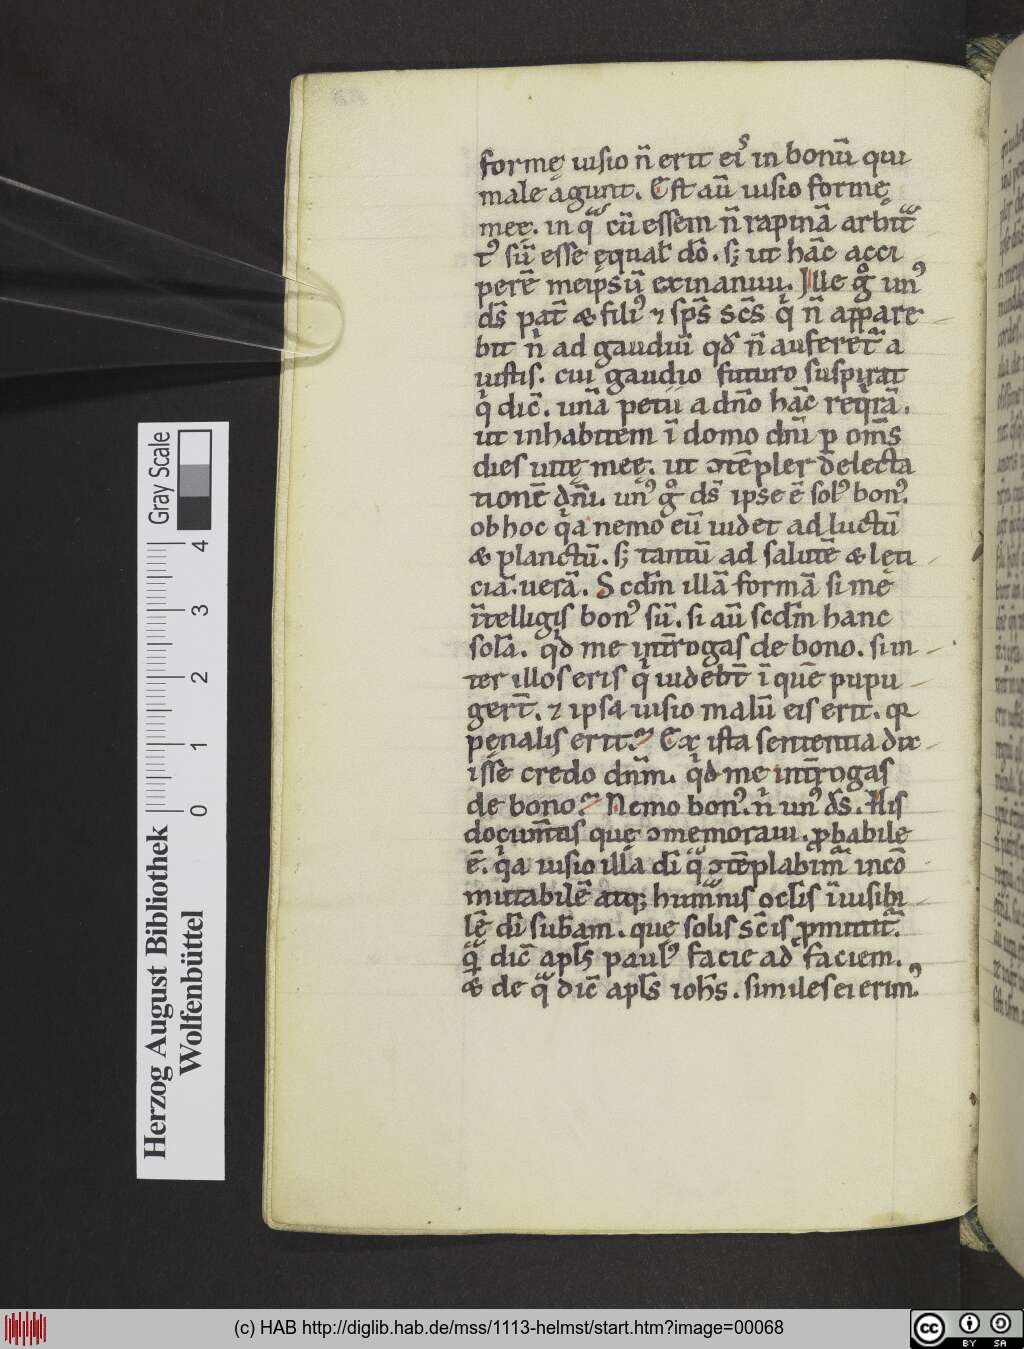 formę uisio n̄ erit ei᷒ in bonū qui
male agunt. Est aū uisio formę
meę. in qᵃ cū essem n̄ rapinā arbitᵃ
t᷒ sū esse ęqual' dō. sꝫ ut hāc acci
perē meipsū exinaniui. Ille gͦ un᷒
ds̄ pat̄ & fili᷒ ⁊ sps̄ scs̄ qⁱ n̄ appare
bit nⁱ ad gaudiū qd̄ n̄ auferet̄ a
iustis. cui gaudio futuro suspirat
qⁱ dic̄. unā petii a dn̄o hāc reqⁱrā.
ut inhabitem ī domo dnī ꝑ om̄s
dies uitę meę. ut ꝯtēpler delecta
tionē dn̄i. un᷒ gͦ ds̄ ipse ē sol᷒ bon᷒.
ob hoc qⁱa nemo eū uidet ad luctū
& planctū. sꝫ tantū ad salutē & lęti
ciā. uerā. Scdm̄ illā formā si me
īntelligis bon᷒ sū. si aū scdm̄ hanc
solā. qⁱd me int̄rogas de bono. si in
ter illos eris qⁱ uidebt̄ ī quē pupu
gert̄. ⁊ ipsa uisio malū eis erit. qꝛ
penalis erit. Ex ista sententia dix
isse credo dnm̄. qⁱd me int̄rogas
de bono? Nemo bon᷒. nⁱ un᷒ ds̄. His
docum̄tis quę ꝯmemoraui. ꝓbabile
ē. qⁱa uisio illa dī qᵃ ꝯtēplabim᷒ incō
mutabilē atqꝫ humᵃnis oclīs īuisibi
lē dī subam̄. quę solis scīs ꝓmittit̄.
qᵃ dic̄ apls̄ paul᷒ facie ad faciem.
& de qᵃ dic̄ apls̄ iohs̄. similes ei erim᷒.
Gray Scale
0 1 2 3 4
Herzog August Bibliothek
Wolfenbüttel
(c) HAB http://diglib.hab.de/mss/1113-helmst/start.htm?image=00068
cc BY SA